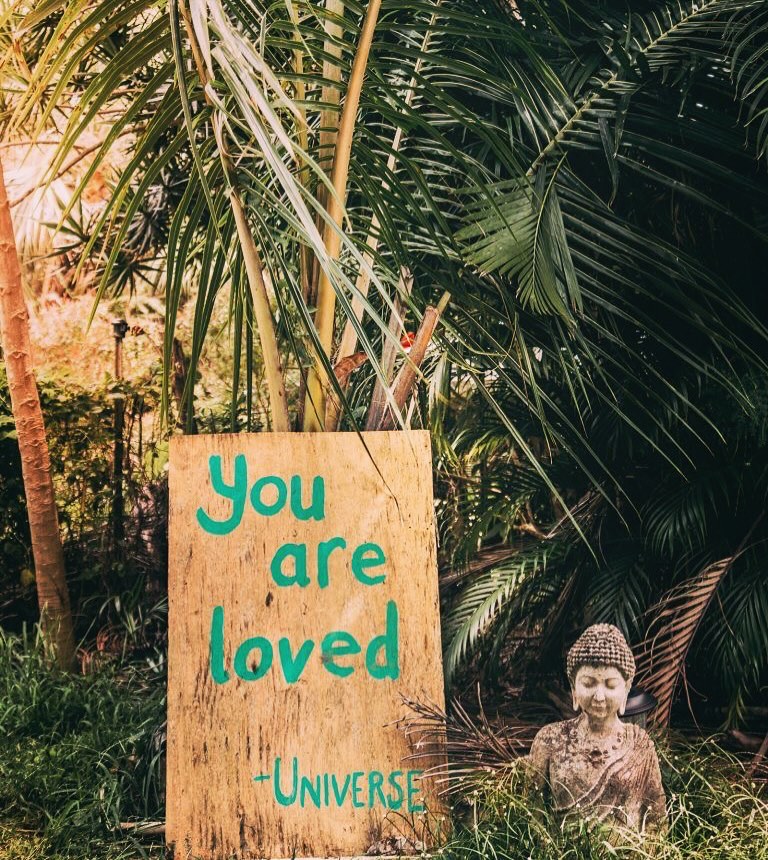 You
are
loved
-UNIVERSE